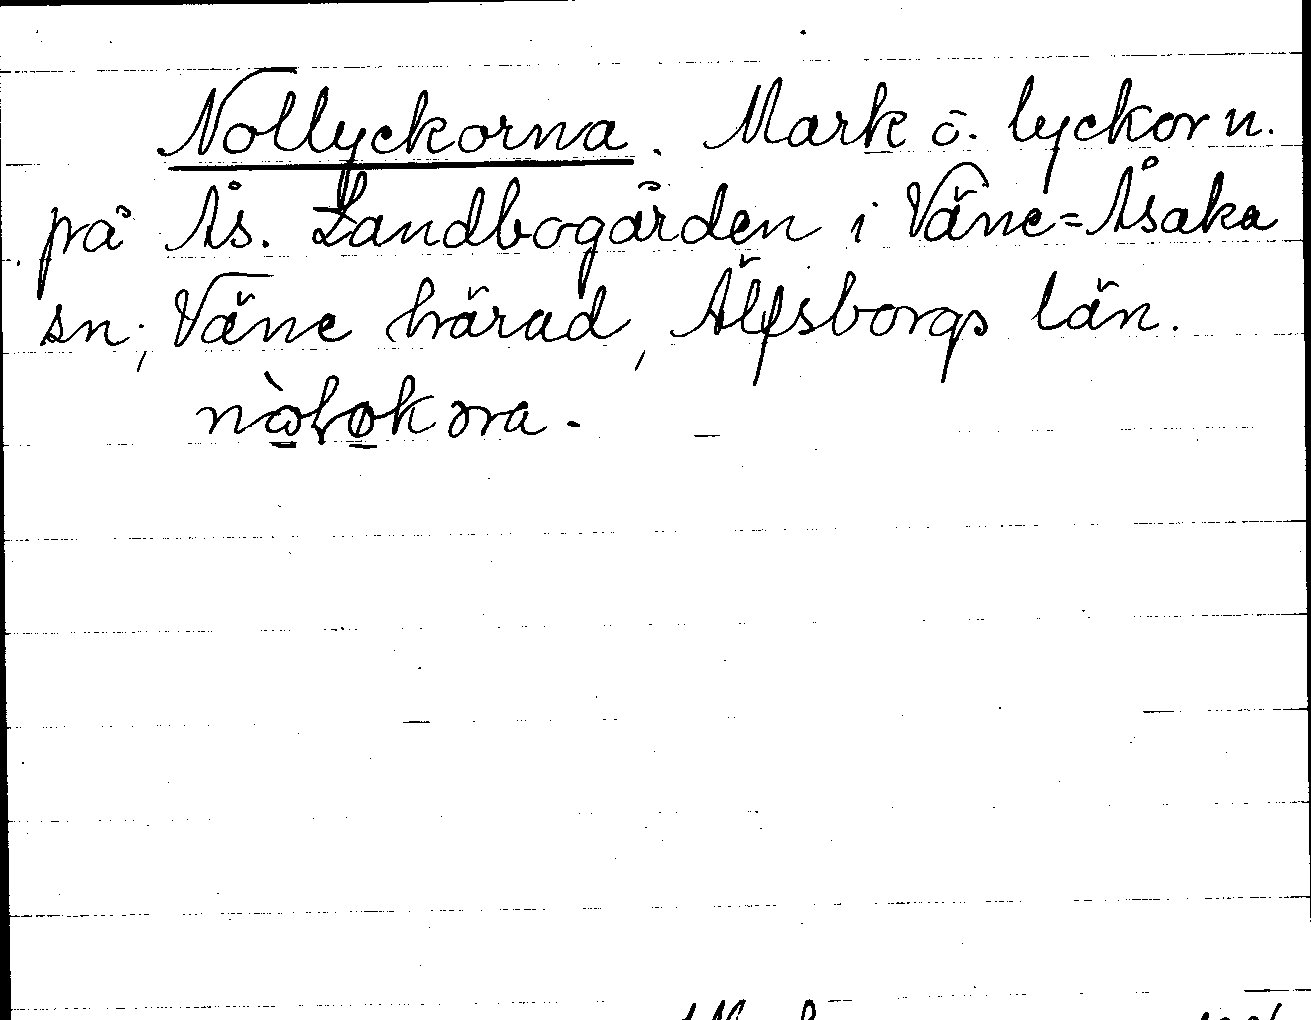 Nollyckorna. Mark o. lyckor n.
på Ås. Landbogården i Väne=Åsaka
sn; Väne härad, Älfsborgs län.